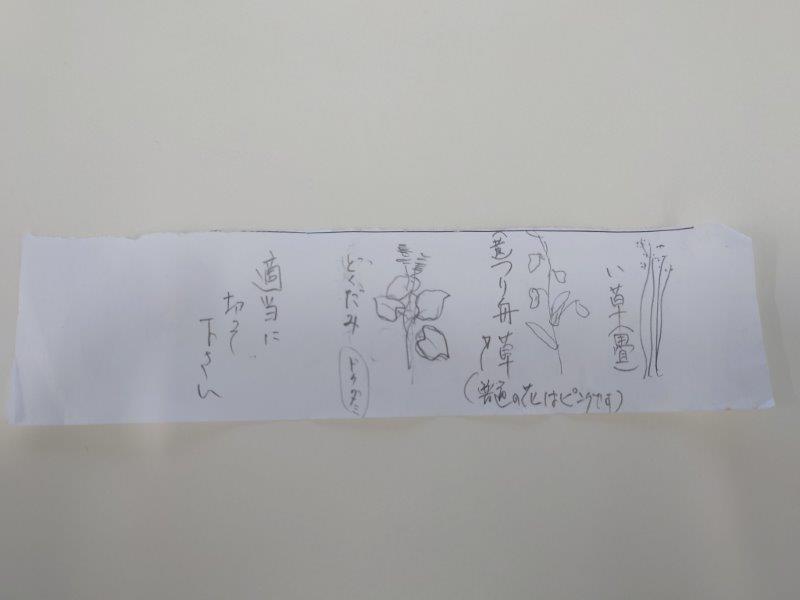 い草(畳)
(黄)つり舟草
(普通の花はピンクです)
どくだみ
ドクダミ
適当に
切って
下さい